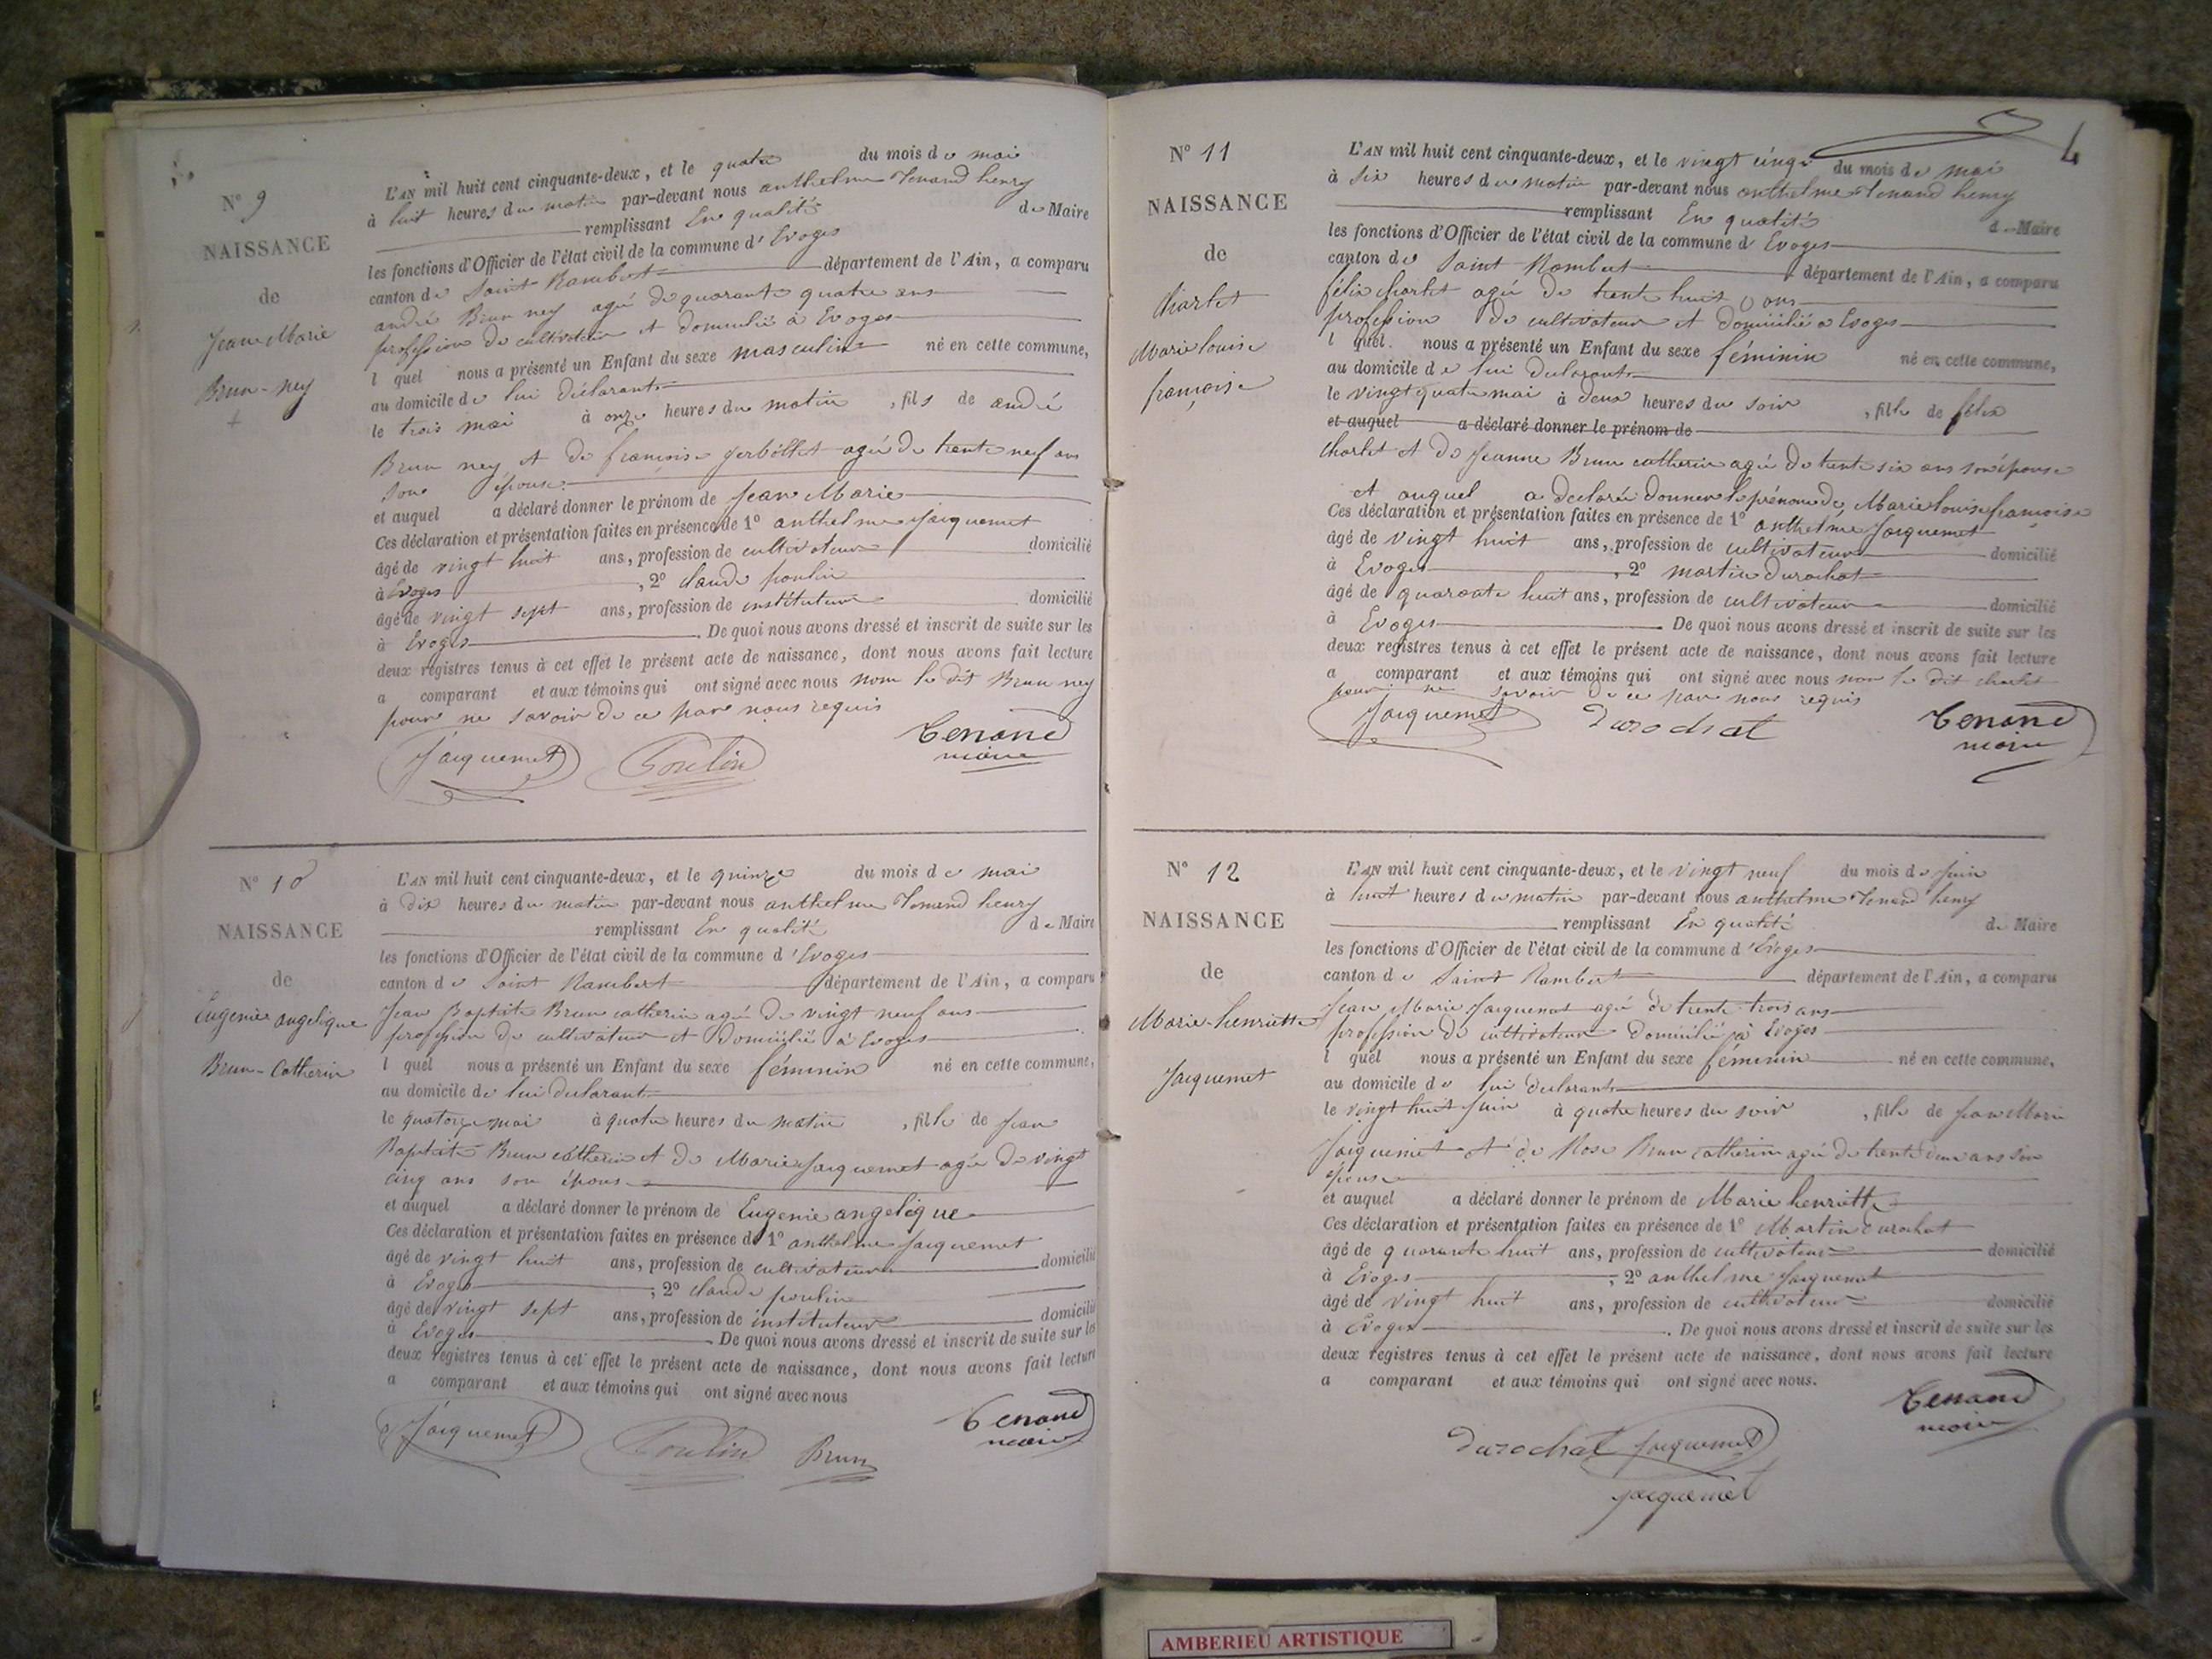 N° 9
NAISSANCE
de
Jean Marie
Brun-ney
L'AN mil huit cent cinquante-deux, et le quatre du mois de mai
à huit heures du matin par-devant nous anthelme Tenand henry
remplissant En qualité de Maire
les fonctions d'Officier de l'état civil de la commune d'Evoges
canton de Saint Rambert département de l'Ain, a comparu
andré Brun ney agé de quarante quatre ans
profession de cultivateur et domicilié à Evoges
l quel nous a présenté un Enfant du sexe masculin né en cette commune,
au domicile de lui déclarant
le trois mai à onze heures du matin , fils de andré
Brun ney et de françoise agée de trente neuf ans
son épouse
et auquel a déclaré donner le prénom de Jean Marie
Ces déclaration et présentation faites en présence de 1° anthelme Jacquemet
âgé de vingt huit ans, profession de cultivateur domicilié
à Evoges , 2° claude poulin
âgé de vingt sept ans, profession de instituteur domicilié
à Evoges . De quoi nous avons dressé et inscrit de suite sur les
deux registres tenus à cet effet le présent acte de naissance, dont nous avons fait lecture
a comparant et aux témoins qui ont signé avec nous non le dit Brun ney
pour ne savoir de ce par nous requis
Jacquemet Poulin Tenand
maire
N° 10
NAISSANCE
de
Eugenie angelique
Brun-Catherin
L'AN mil huit cent cinquante-deux, et le quinze du mois de mai
à dix heures du matin par-devant nous anthelme Tenand henry
remplissant En qualité de Maire
les fonctions d'Officier de l'état civil de la commune d'Evoges
canton de Saint Rambert département de l'Ain, a comparu
Jean Baptiste Brun catherin agé de vingt neuf ans
profession de cultivateur et domicilié à Evoges
l quel nous a présenté un Enfant du sexe féminin né en cette commune,
au domicile de lui déclarant
le quatorze mai à quatre heures du matin , fille de Jean
Baptiste Brun catherin et de Marie Jacquemet agée de vingt
cinq ans son épouse
et auquel a déclaré donner le prénom de Eugenie angelique
Ces déclaration et présentation faites en présence de 1° anthelme Jacquemet
âgé de vingt huit ans, profession de cultivateur domicilié
à Evoges , 2° claude poulin
âgé de vingt sept ans, profession de instituteur domicilié
à Evoges . De quoi nous avons dressé et inscrit de suite sur les
deux registres tenus à cet effet le présent acte de naissance, dont nous avons fait lecture
a comparant et aux témoins qui ont signé avec nous
Jacquemet Poulin Brun Tenand
maire
4
N° 11
NAISSANCE
de
Charlet
Marie louise
françoise
L'AN mil huit cent cinquante-deux, et le vingt cinq du mois de mai
à six heures du matin par-devant nous anthelme Tenand henry
remplissant En qualité de Maire
les fonctions d'Officier de l'état civil de la commune d Evoges
canton de Saint Rambert département de l'Ain, a comparu
félix charlet agé de trente huit ans
profession de cultivateur et domicilié a Evoges
l quel nous a présenté un Enfant du sexe féminin né en cette commune,
au domicile de lui déclarant
le vingt quatre mai à deux heures du soir , fille de félix
et auquel a déclaré donner le prénom de
charlet et de Jeanne Brun catherin agée de trente six ans son épouse
et auquel a declaré donner le prénom de Marie louise françoise
Ces déclaration et présentation faites en présence de 1° anthelme Jacquemet
âgé de vingt huit ans, profession de cultivateur domicilié
à Evoges , 2° martin durochat
âgé de quarante huit ans, profession de cultivateur domicilié
à Evoges . De quoi nous avons dressé et inscrit de suite sur les
deux registres tenus à cet effet le présent acte de naissance, dont nous avons fait lecture
a comparant et aux témoins qui ont signé avec nous non le dit charlet
pour ne savoir de ce par nous requis
Jacquemet Durochat Tenand
maire
N° 12
NAISSANCE
de
Marie henriette
Jacquemet
L'AN mil huit cent cinquante-deux, et le vingt neuf du mois de juin
à huit heures du matin par-devant nous anthelme Tenand henry
remplissant En qualité de Maire
les fonctions d'Officier de l'état civil de la commune d'Evoges
canton de Saint Rambert département de l'Ain, a comparu
Jean Marie Jacquemet agé de trente trois ans
profession de cultivateur domicilié à Evoges
l quel nous a présenté un Enfant du sexe féminin né en cette commune,
au domicile de lui declarant
le vingt huit juin à quatre heures du soir , fille de Jean Marie
Jacquemet et de Rose Brun catherin agée de trente deux ans son
épouse
et auquel a déclaré donner le prénom de Marie henriette
Ces déclaration et présentation faites en présence de 1° Martin durochat
âgé de quarante huit ans, profession de cultivateur domicilié
à Evoges , 2° anthelme Jacquemet
âgé de vingt huit ans, profession de cultivateur domicilié
à Evoges . De quoi nous avons dressé et inscrit de suite sur les
deux registres tenus à cet effet le présent acte de naissance, dont nous avons fait lecture
a comparant et aux témoins qui ont signé avec nous.
Durochat Jacquemet Tenand
maire
Jacquemet
AMBERIEU ARTISTIQUE